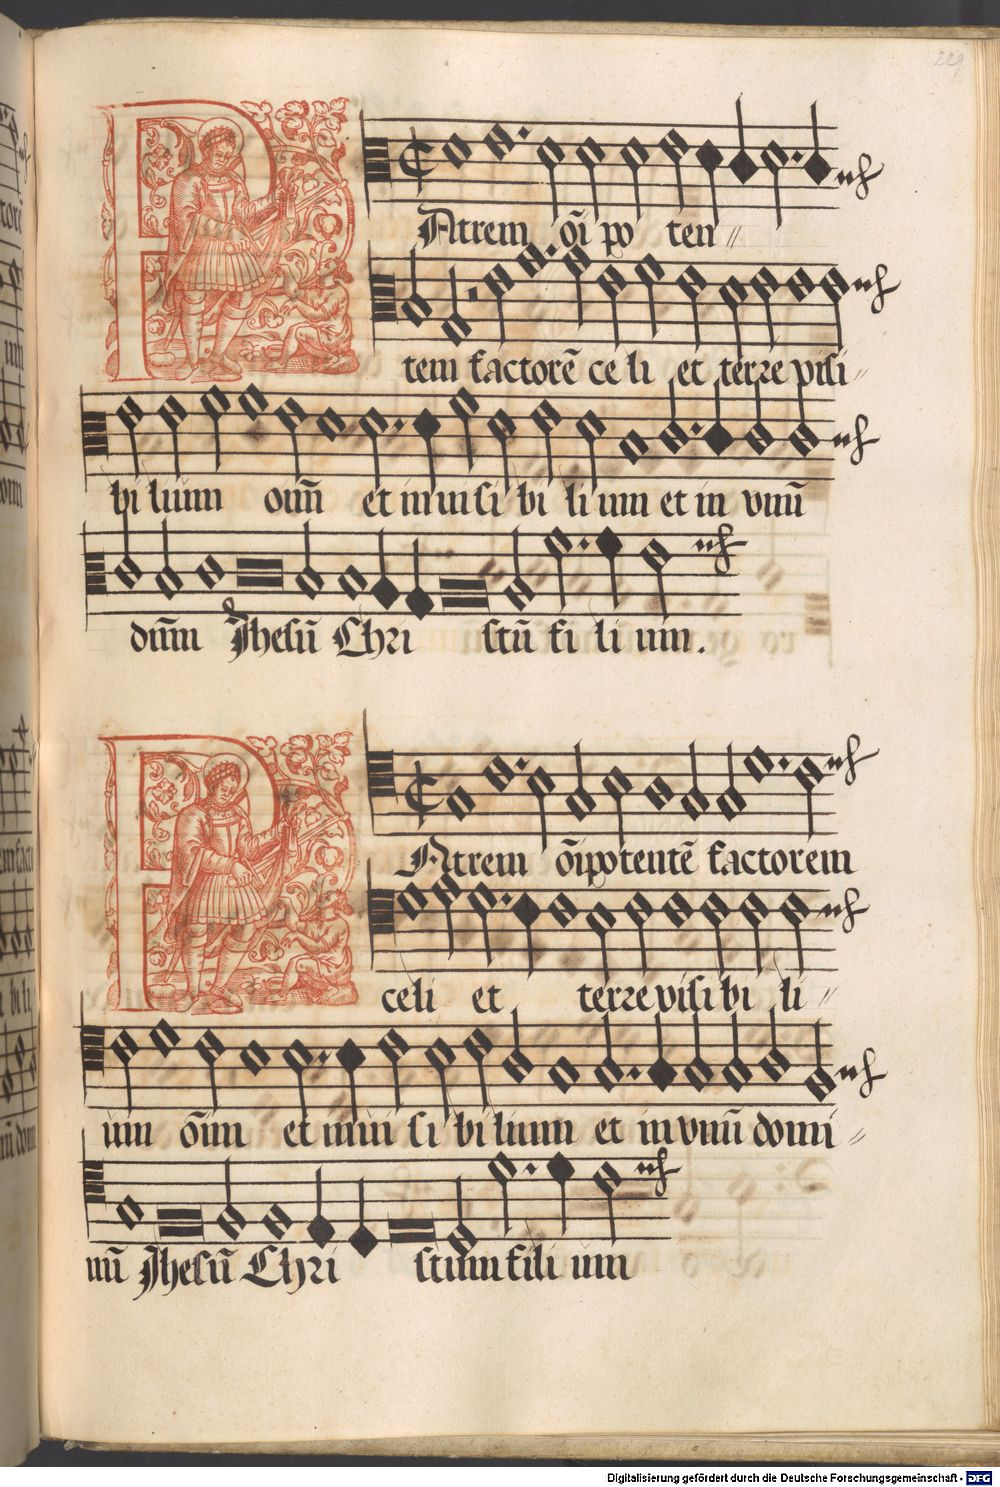 229
PAtrem oi᷈ po ten〃
tem factorē ce li et terre visi〃
bi lium oim̄ et in visi bi li um et in vnū
dūm Jhesū Chri stū fi li um.
PAtrem ōipotentē factorem
celi et terre visi bi li〃
um ōim et in vi si bi lium et in vnū domi〃
nū Jhesū Chri stum fili um
Digitalisierung gefördert durch die Deutsche Forschungsgemeinschaft - DFG